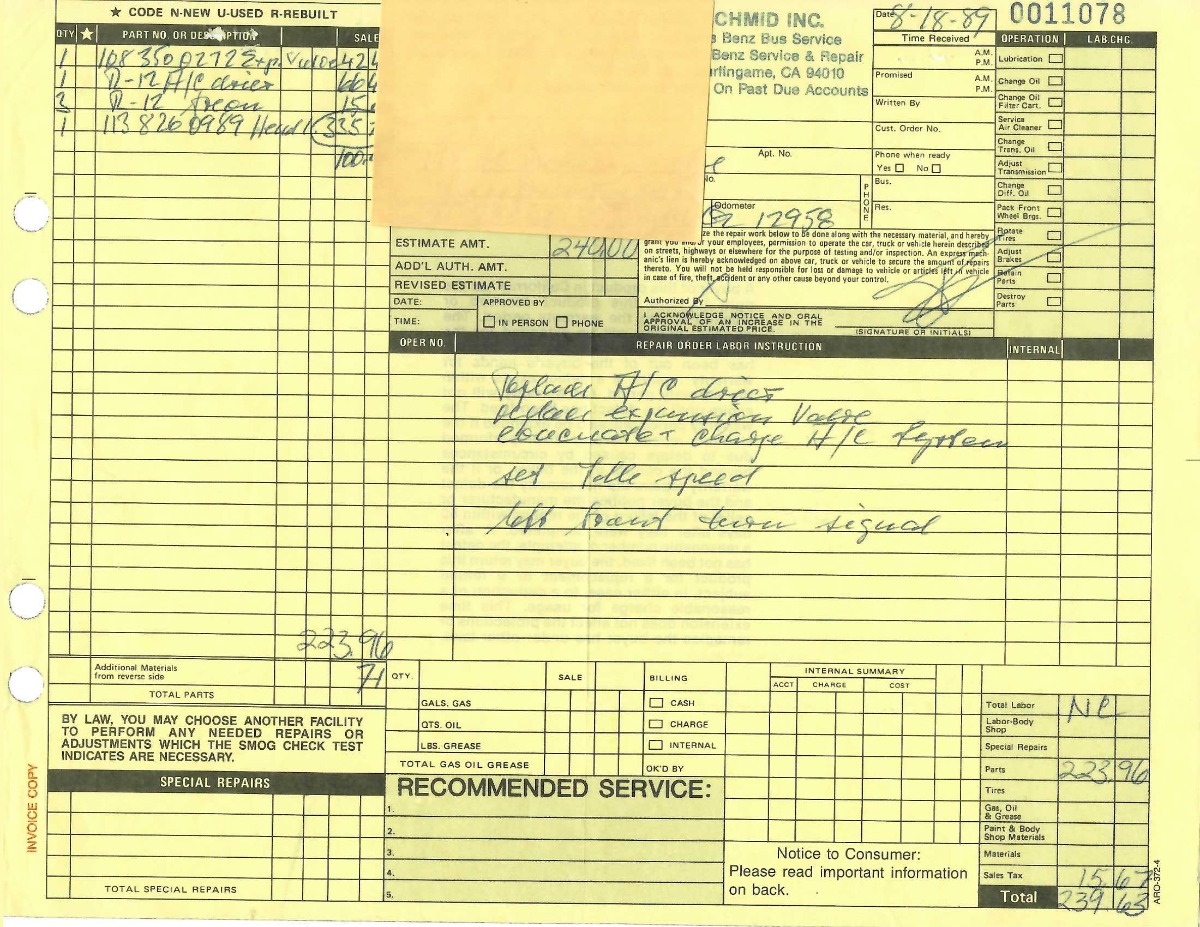 ★ CODE N-NEW U-USED R-REBUILT
QTY ★ PART NO. OR DESCRIPTION SALE
1 108 350 0272 Exp. Valve 42
1 R-12 A/C drier 66
3 R-12 freon 15
1 113 826 0989 Head 335
100
223.96
Additional Materials from reverse side 71
TOTAL PARTS
BY LAW, YOU MAY CHOOSE ANOTHER FACILITY
TO PERFORM ANY NEEDED REPAIRS OR
ADJUSTMENTS WHICH THE SMOG CHECK TEST
INDICATES ARE NECESSARY.
SPECIAL REPAIRS
TOTAL SPECIAL REPAIRS
INVOICE COPY
CHMID INC.
s Benz Bus Service
Benz Service & Repair
rlingame, CA 94010
On Past Due Accounts
Date 8-18-89
0011078
Time Received
A.M.
P.M.
Promised
A.M.
P.M.
Written By
Cust. Order No.
Apt. No.
Phone when ready
Yes No
PHONE
Bus.
Res.
No.
Odometer
12958
OPERATION LAB.CHG.
Lubrication
Change Oil
Change Oil Filter Cart.
Service Air Cleaner
Change Trans. Oil
Adjust Transmission
Change Diff. Oil
Pack Front Wheel Brgs.
Rotate Tires
Adjust Brakes
Retain Parts
Destroy Parts
ESTIMATE AMT. 240.00
ADD'L AUTH. AMT.
REVISED ESTIMATE
DATE: APPROVED BY
TIME: IN PERSON PHONE
ze the repair work below to be done along with the necessary material, and hereby
grant you and/or your employees, permission to operate the car, truck or vehicle herein described
on streets, highways or elsewhere for the purpose of testing and/or inspection. An express mech-
anic's lien is hereby acknowledged on above car, truck or vehicle to secure the amount of repairs
thereto. You will not be held responsible for loss or damage to vehicle or articles left in vehicle
in case of fire, theft, accident or any other cause beyond your control.
Authorized By
I ACKNOWLEDGE NOTICE AND ORAL
APPROVAL OF AN INCREASE IN THE
ORIGINAL ESTIMATED PRICE.
(SIGNATURE OR INITIALS)
OPER NO. REPAIR ORDER LABOR INSTRUCTION INTERNAL
Replace A/C drier
replace expansion Valve
evacuate + charge A/C System
set Idle speed
left front turn signal
QTY. SALE BILLING
GALS. GAS CASH
QTS. OIL CHARGE
LBS. GREASE INTERNAL
TOTAL GAS OIL GREASE OK'D BY
INTERNAL SUMMARY
ACCT CHARGE COST
RECOMMENDED SERVICE:
1.
2.
3.
4.
5.
Notice to Consumer:
Please read important information
on back.
Total Labor NC
Labor-Body Shop
Special Repairs
Parts 223.96
Tires
Gas, Oil & Grease
Paint & Body Shop Materials
Materials
Sales Tax 15.67
Total 239.63
ARO-372-4